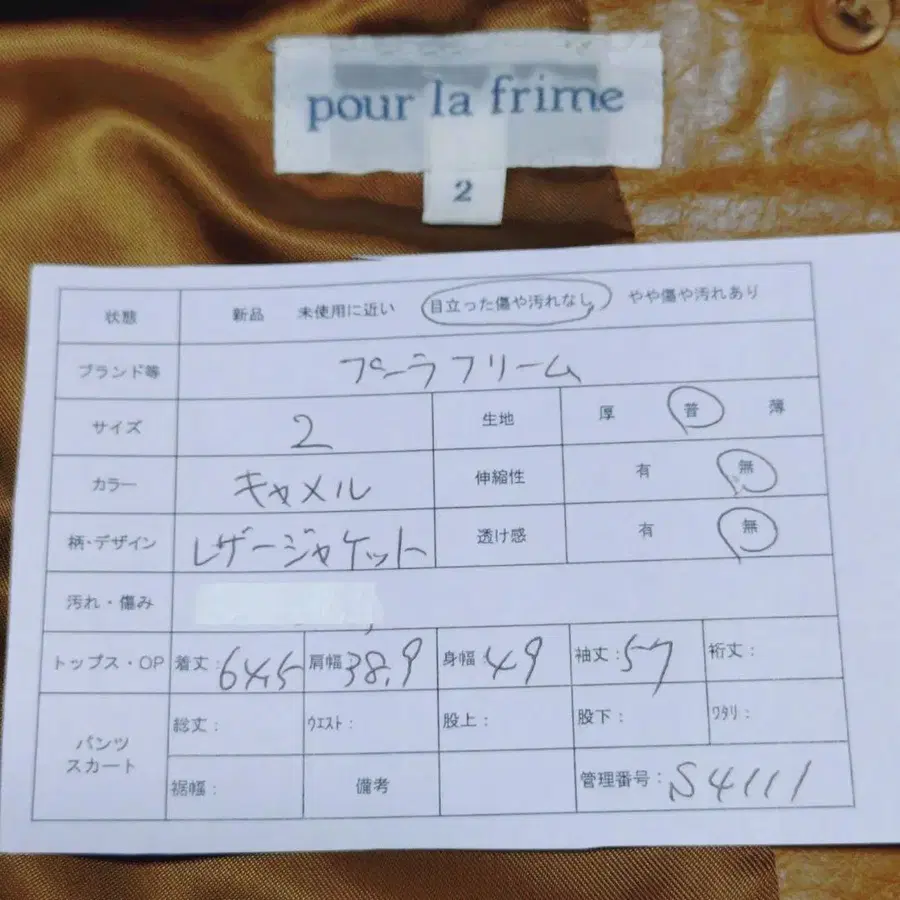 pour la frime
2
状態 新品 未使用に近い 目立った傷や汚れなし やや傷や汚れあり
ブランド等 プーラフリーム
サイズ 2 生地 厚 普 薄
カラー キャメル 伸縮性 有 無
柄・デザイン レザージャケット 透け感 有 無
汚れ・傷み
トップス・OP 着丈：64.5 肩幅：38.9 身幅：49 袖丈：57 裄丈：
パンツ スカート 総丈： ｳｴｽﾄ： 股上： 股下： ﾜﾀﾘ：
裾幅： 備考 管理番号：S4111